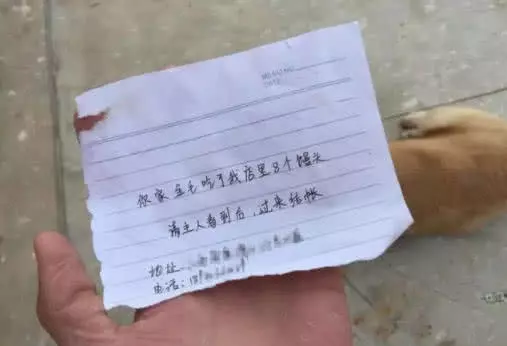 你家金毛吃了我店里8个馒头
请主人看到后，过来结帐
地址
电话：